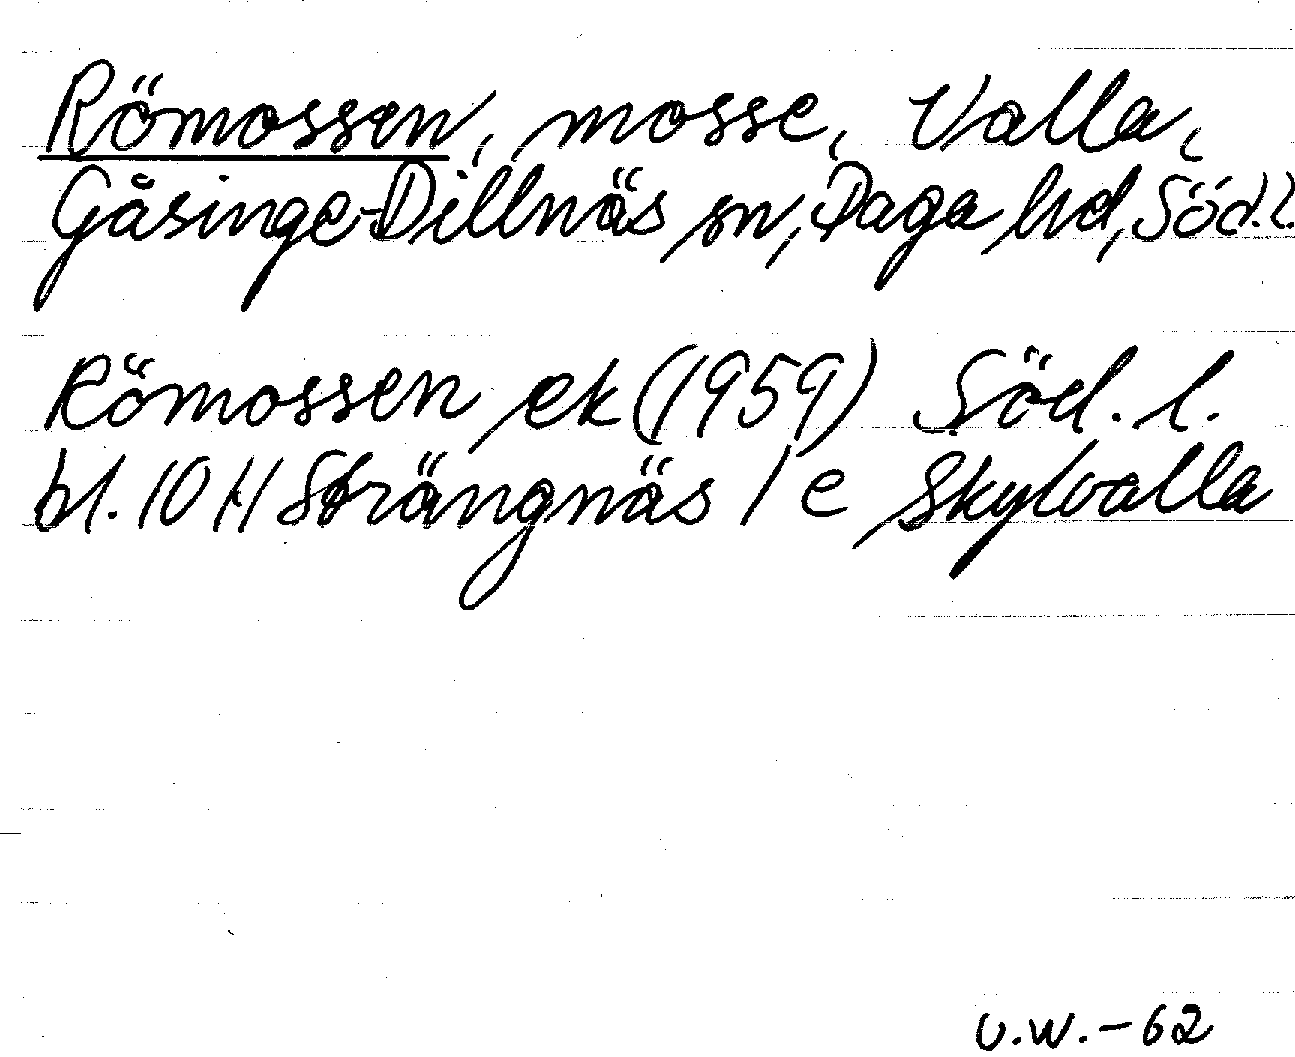 Römossen, mosse, Valla,
Gåsinge-Dillnäs sn, Daga hd, Söd.l.
Römossen ek (1959) Söd. l.
bl. 10 H Strängnäs / e Skylvalla
U.W.-62